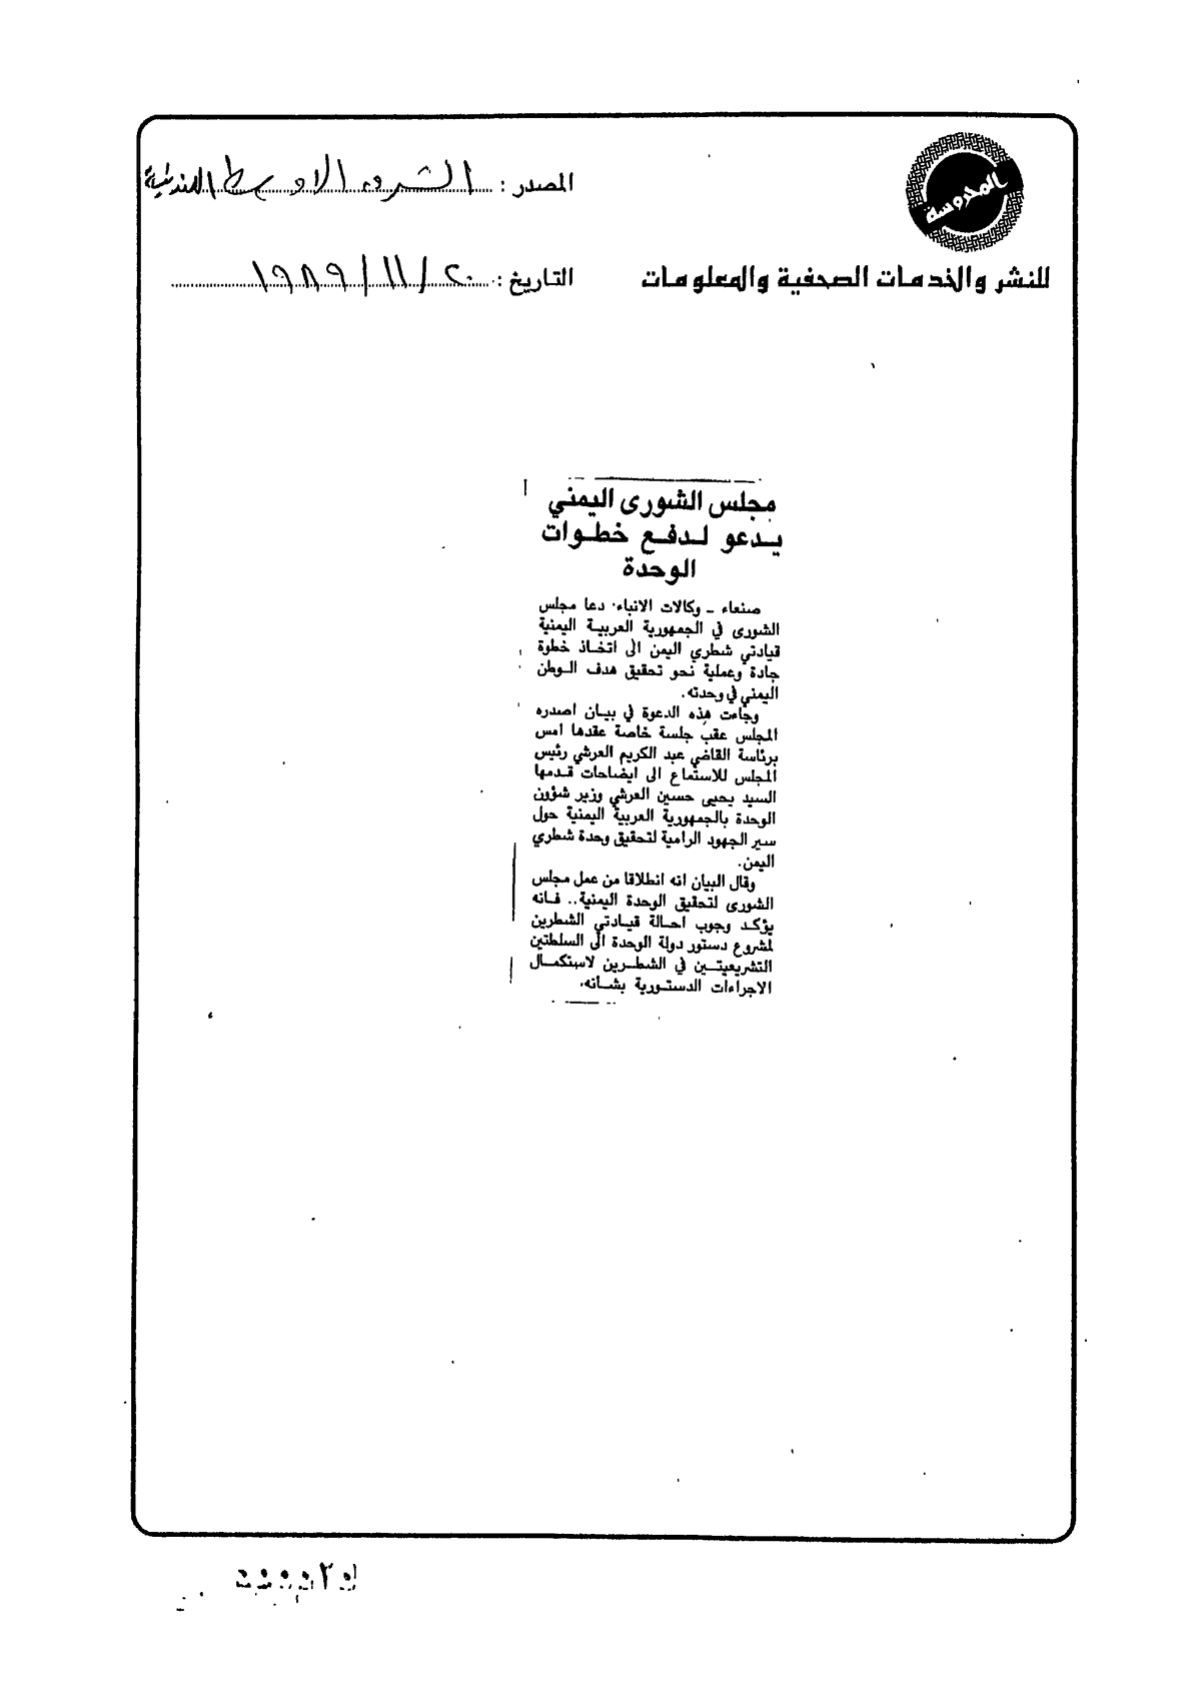 المحروسة
للنشر والخدمات الصحفية والمعلومات
المصدر : الشرق الاوسط اللندنية
التاريخ : ٢٠/١١/١٩٨٩
مجلس الشورى اليمني
يدعو لدفع خطوات
الوحدة
صنعاء ـ وكالات الانباء: دعا مجلس
الشورى في الجمهورية العربية اليمنية
قيادتي شطري اليمن الى اتخاذ خطوة
جادة وعملية نحو تحقيق هدف الوطن
اليمني في وحدته.
وجاءت هذه الدعوة في بيان اصدره
المجلس عقب جلسة خاصة عقدها امس
برئاسة القاضي عبد الكريم العرشي رئيس
المجلس للاستماع الى ايضاحات قدمها
السيد يحيى حسين العرشي وزير شؤون
الوحدة بالجمهورية العربية اليمنية حول
سير الجهود الرامية لتحقيق وحدة شطري
اليمن.
وقال البيان انه انطلاقا من عمل مجلس
الشورى لتحقيق الوحدة اليمنية.. فانه
يؤكد وجوب احالة قيادتي الشطرين
لمشروع دستور دولة الوحدة الى السلطتين
التشريعيتين في الشطرين لاستكمال
الاجراءات الدستورية بشانه.